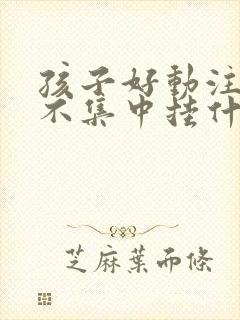 孩子好動注
不集中挂什
芝麻葉而條